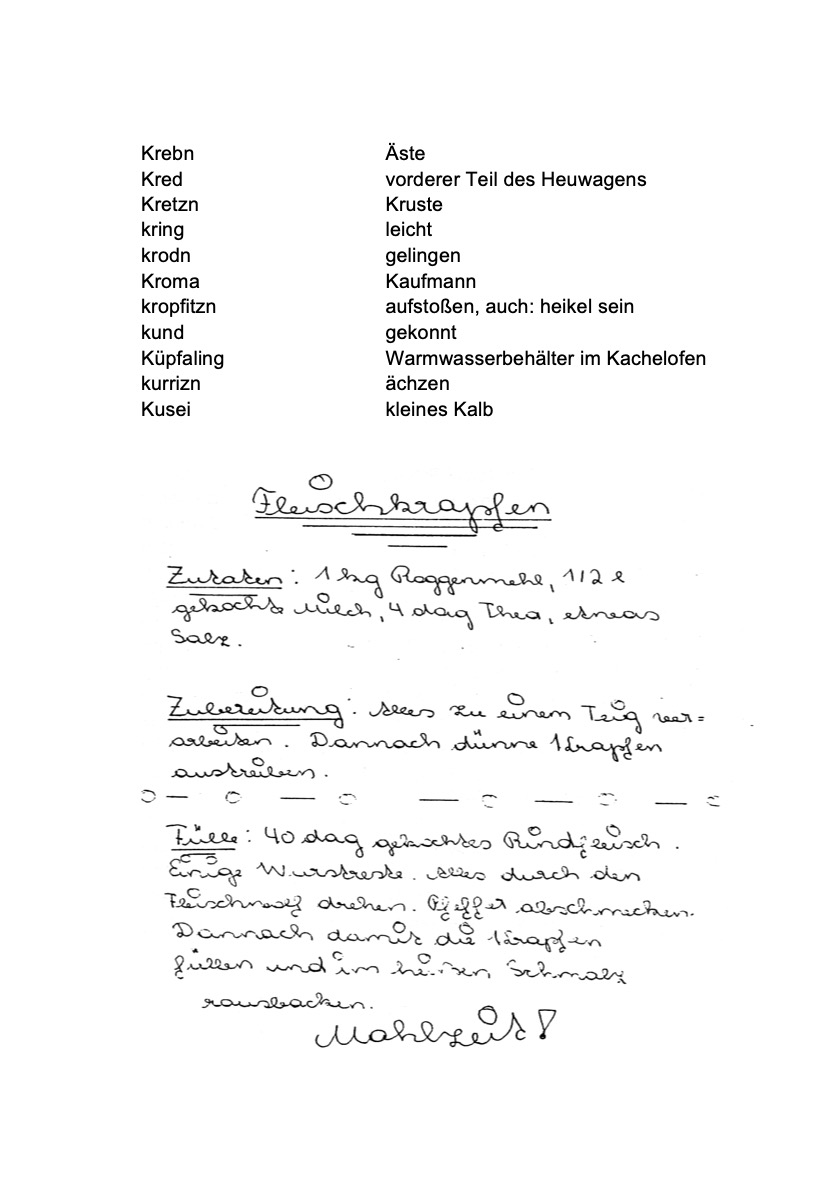 Krebn Äste
Kred vorderer Teil des Heuwagens
Kretzn Kruste
kring leicht
krodn gelingen
Kroma Kaufmann
kropfitzn aufstoßen, auch: heikel sein
kund gekonnt
Küpfaling Warmwasserbehälter im Kachelofen
kurrizn ächzen
Kusei kleines Kalb
Fleischkrapfen
Zutaten: 1 kg Roggenmehl, 1/2 l
gekochte Milch, 4 dag Thea, etwas
Salz.
Zubereitung: Alles zu einem Teig ver=
arbeiten. Dannach dünne Krapfen
austreiben.
Fülle: 40 dag gekochtes Rindfleisch.
Einige Wurstreste. Alles durch den
Fleischwolf drehen. Pfeffer abschmecken.
Dannach damit die Krapfen
füllen und im heißen Schmalz
rausbacken.
Mahlzeit!